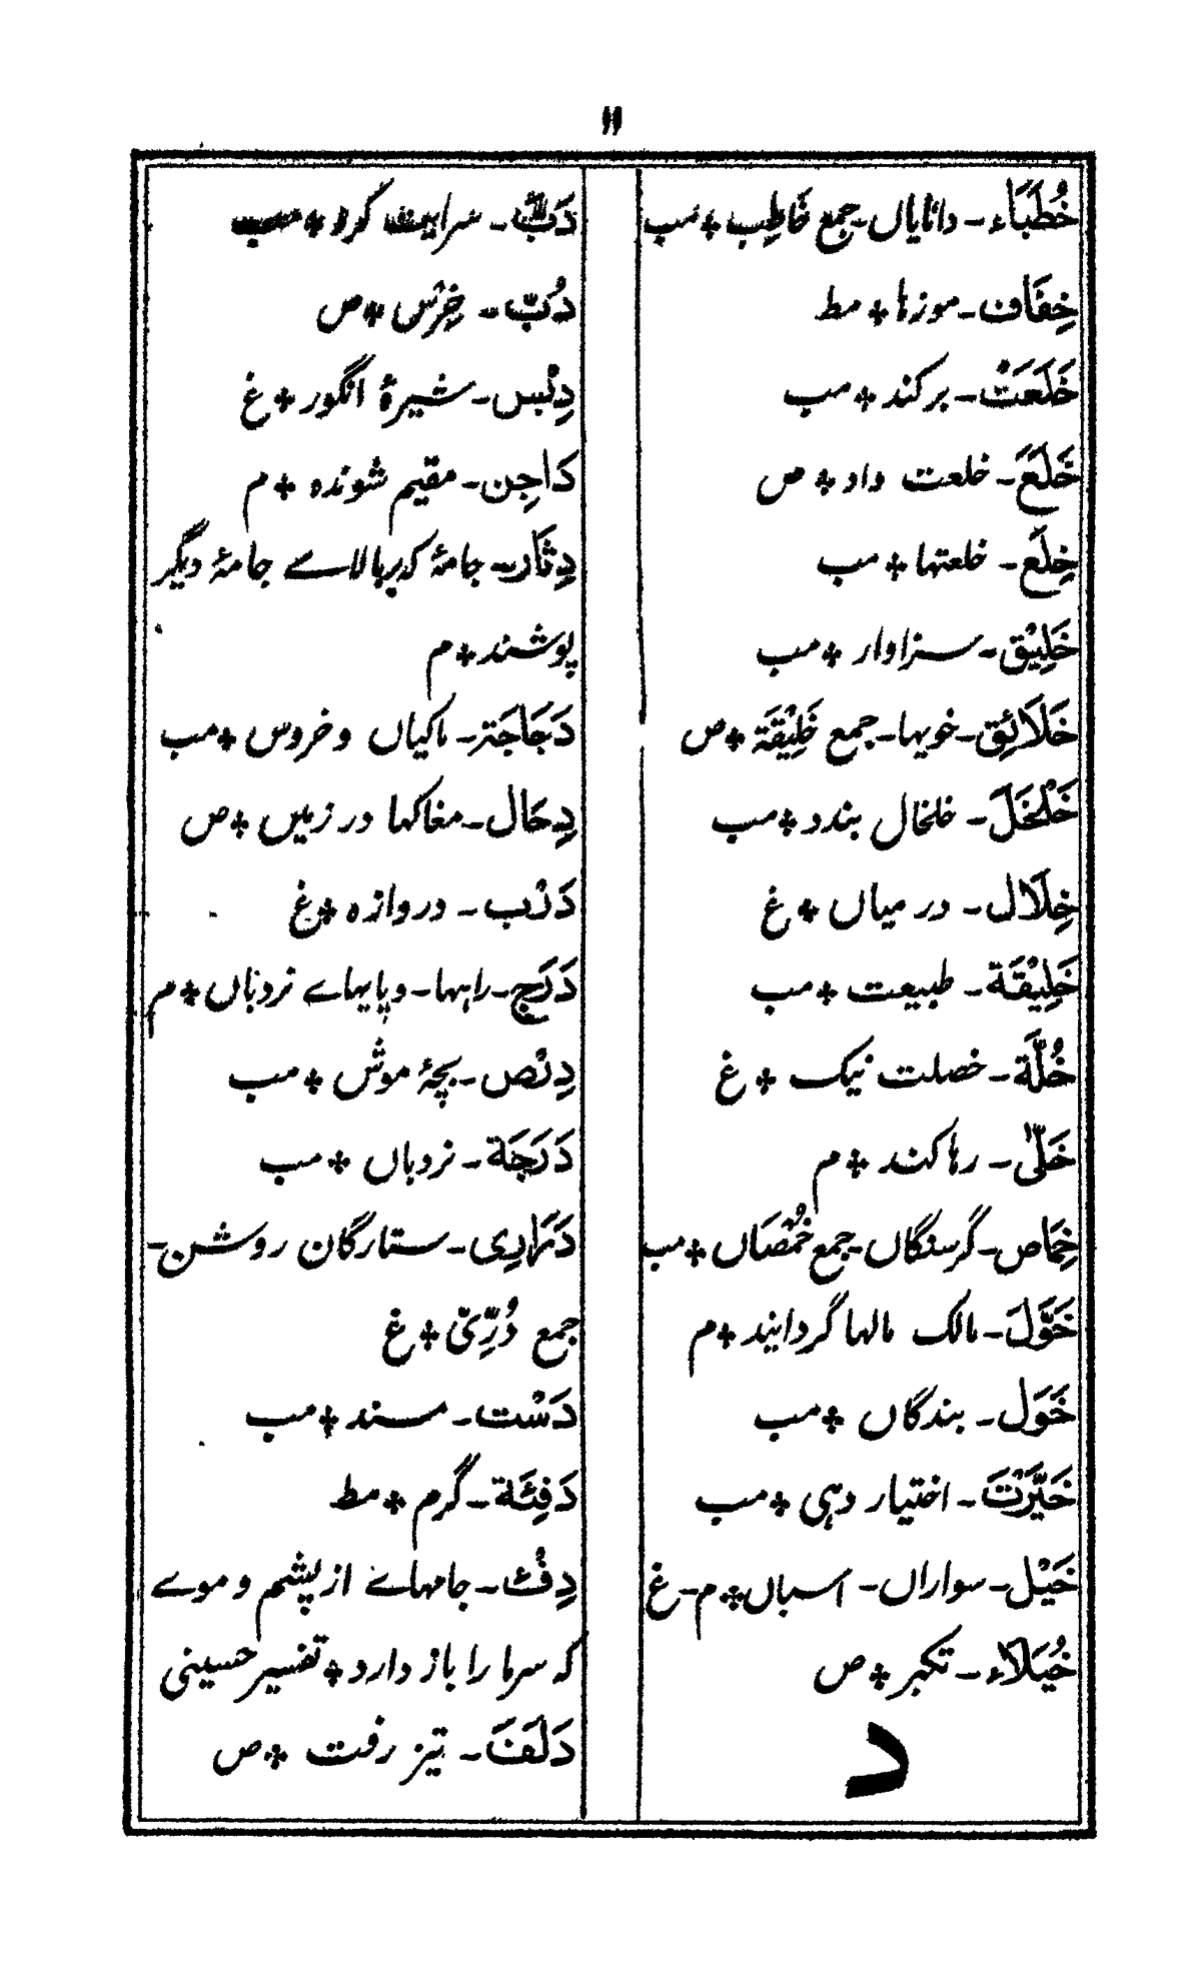 ۱۱
خُطَبَاء۔ دانایاں۔ جمع خَاطِب ⁕ مب
خِفَاف۔ موزہا ⁕ مط
خَلَعَتْ۔ برکند ⁕ مب
خَلَعَ۔ خلعت داد ⁕ ص
خِلَع۔ خلعتہا ⁕ مب
خَلِیْق۔ سزاوار ⁕ مب
خَلَائِق۔ خویہا۔ جمع خَلِیْقَة ⁕ ص
خَلْخَلَ۔ خلخال بندد ⁕ مب
خِلَال۔ درمیاں ⁕ غ
خَلِیْقَة۔ طبیعت ⁕ مب
خُلَّة۔ خصلت نیک ⁕ غ
خَلّٰی۔ رہا کند ⁕ م
خِمَاص۔ گرسنگاں۔ جمع خُمْصَاں ⁕ مب
خَوَّلَ۔ مالک مالہا گردانید ⁕ م
خَوَل۔ بندگاں ⁕ مب
خَیَّرْتَ۔ اختیار دہی ⁕ مب
خَیْل۔ سواراں۔ اسباں ⁕ م۔ غ
خُیَلَاء۔ تکبر ⁕ ص
د
دَبَّ۔ سرایت کرد ⁕ مب
دُبّ۔ خِرْس ⁕ ص
دِبْس۔ شیرۂ انگور ⁕ غ
دَاجِن۔ مقیم شوندہ ⁕ م
دِثَار۔ جامۂ کہ بربالاے جامۂ دیگر
پوشند ⁕ م
دَجَاجَة۔ ماکیاں و خروس ⁕ مب
دِحَال۔ مغاکہا در زمیں ⁕ ص
دَرْب۔ دروازہ ⁕ غ
دَرَج۔ راہہا۔ و پایہاے نردباں ⁕ م
دِرْص۔ بچۂ موش ⁕ مب
دَرَجَة۔ نردباں ⁕ مب
دَرَارِی۔ ستارگان روشن۔
جمع دُرِّیّ ⁕ غ
دَسْت۔ مسند ⁕ مب
دَفِئَة۔ گرم ⁕ مط
دِفْء۔ جامہاے از پشم و موے
کہ سرما را باز دارد ⁕ تفسیر حسینی
دَلَفَ۔ تیز رفت ⁕ ص